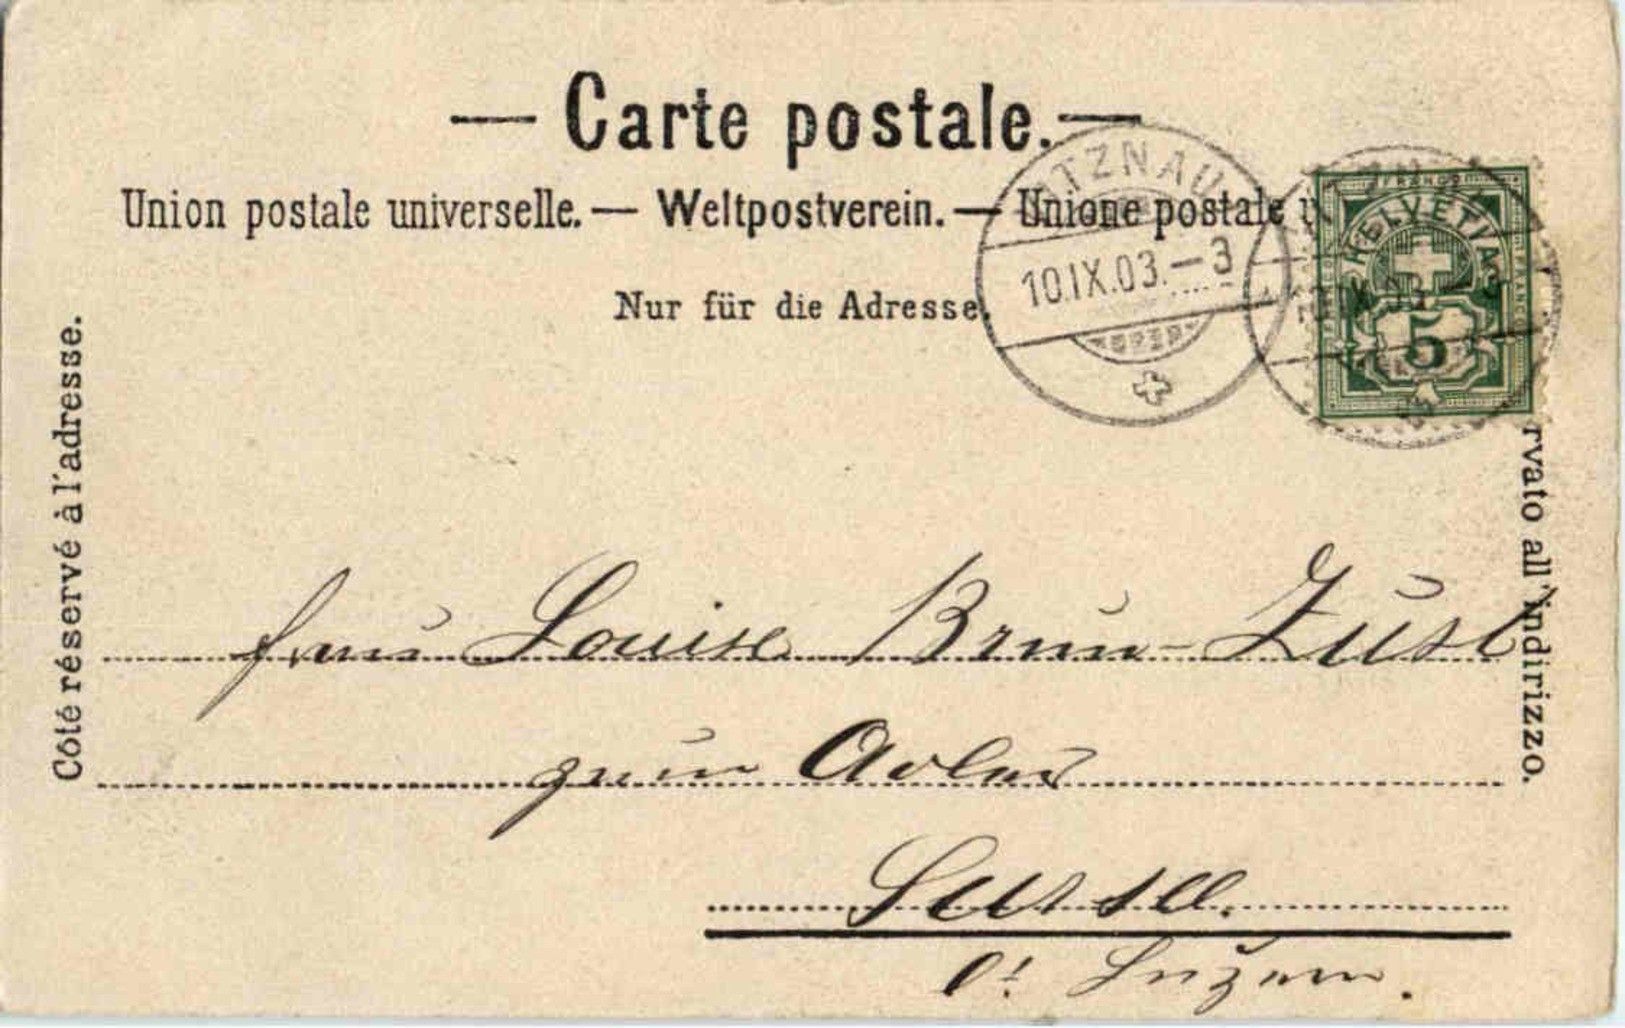 — Carte postale. —
Union postale universelle. — Weltpostverein. — Unione postale
Nur für die Adresse.
Côté réservé à l'adresse.
rvato all'indirizzo.
ITZNAU
10.IX.03.–3
FRANCO
HELVETIA
FRANCO
5
Frau Louise Brun-Züst
zum Adler
Sursee.
Ct Luzern.